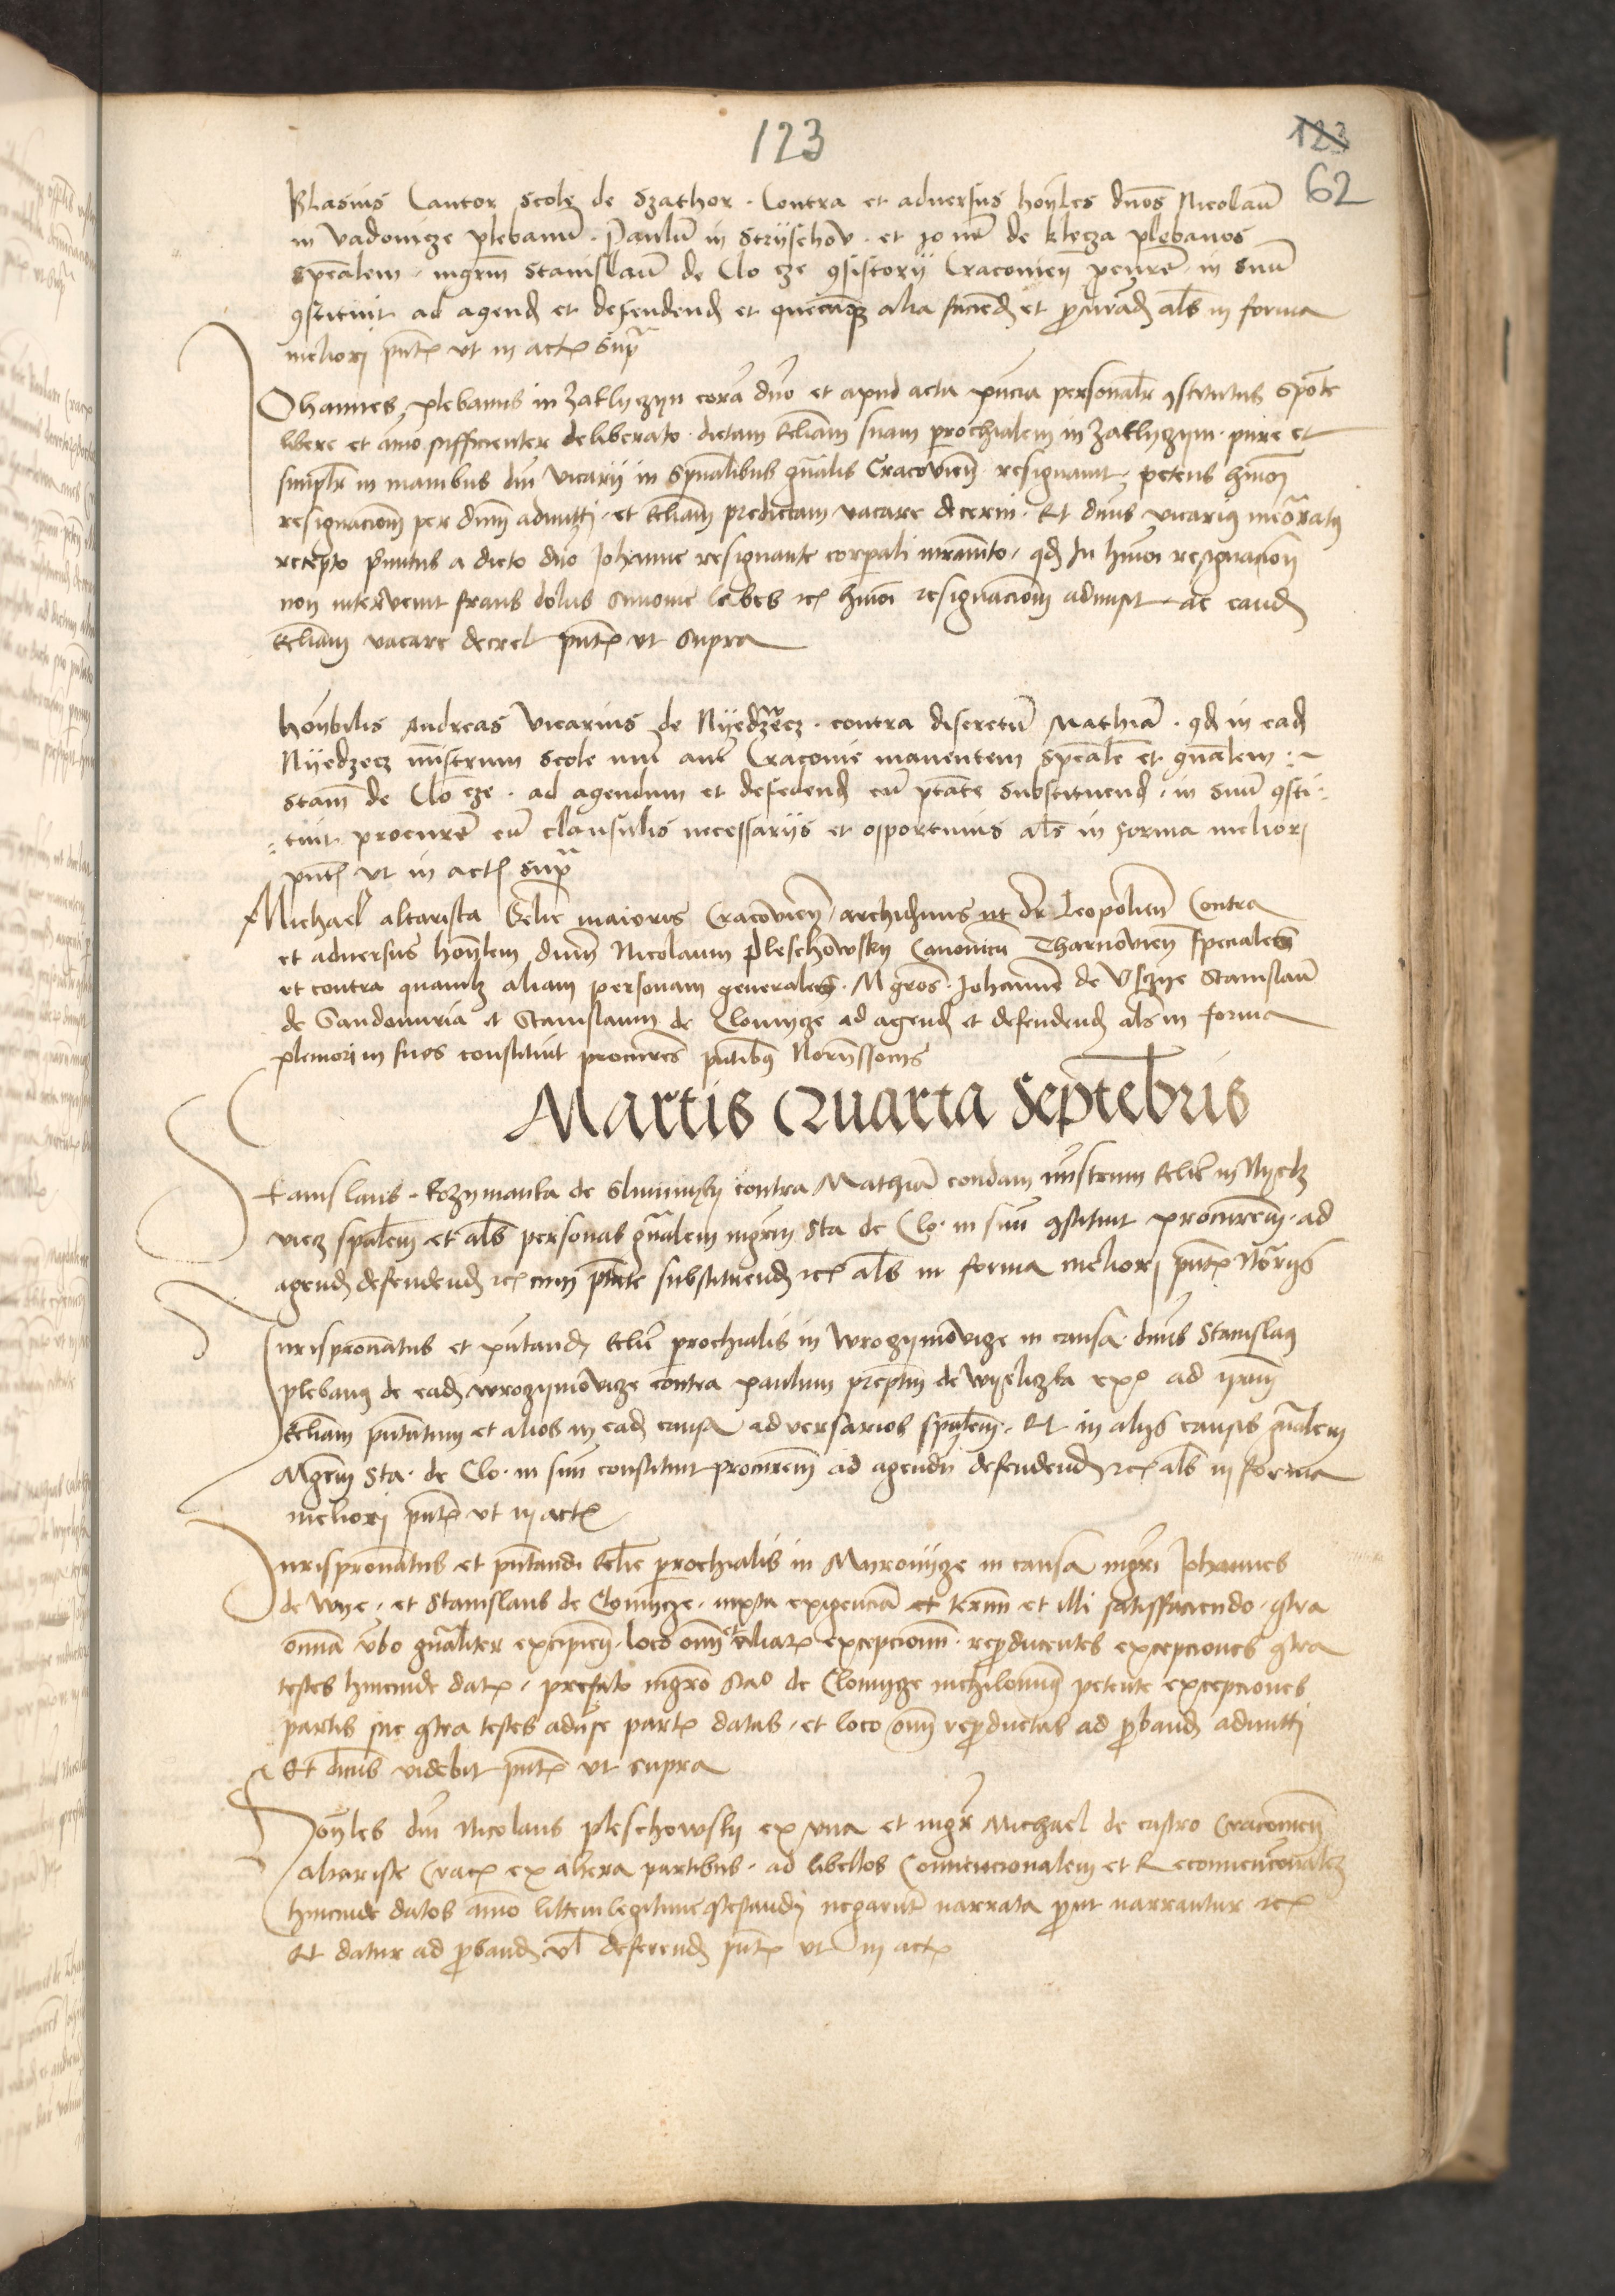 123
123
62
Blasius Cantor scole de Szathor · Contra et adversus honles dnos Nicolaū
in Vadowicze plebanū · Paulū in Strysehow · et Jo nē de klecza plebanos
spēalem · mgrm Stanislaū de Clo cze ꝯsistorij Cracovień ꝓcurē · in suū
ꝯstituit ad agend et defendend et quecūqꝫ alia faciend et ꝓcurād als in forma
meliori pntꝭ ut in actꝭ supra
Johannes plebanus in Zaklyczyn corā dno et apud acta pncia personalr ꝯstitutus spōte
libere et aīo sufficienter deliberato · dictam eccliam suam parochialem in Zaklyczyn · pure et
simplr in manibus dni Vicarij in spūalibus gnalis Cracovień · resignavit · petens hmoi
resignacionem per dnm admitti · et eccliam predictam vacare decerni · Et dnus vicarius memoratus
recepto prmitus a dicto dno Johanne resignante corporali iuramēto · qd in hmoi resignacion
non intervenit fraus dolus Simonie labes etc hmoi resignacionem admisit · ac eand
eccliam vacare decrevit pntꝭ ut supra
honorabilis Andreas Vicarius de Nyedzwecz · contra discretū Mathiā · qd in ead
Nyedzecz mīstrum scole nūc autē Cracovie manentem spēalē et gnālem :~
Stam de Clo cze · ad agendum et defēdend cū ptāte substituend · in suū ꝯsti:
:tuit procurē cū clausulis necessarijs et opportunis als in forma meliori
pntꝭ ut in actꝭ supra
Michael altarista Ecclie maioris Cracovień archidnus ut dr Leopolień Contra
et adversus honlem dnm Nicolaum Pleschowsky Canonicū Tharnovień speciales
et contra quamlꝫ aliam personam generales · Mgros · Johannē de Usczye Stanislaū
de Sandomiria et Stanislaum de Clomycze ad agend et defendend als in forma
pleniori in suos constituit procures pntibus
Martis Quarta Septēbris
Stanislaus · kozymanka de contra Mathiā condam mīstrum ecclie in Nyedz
viecz spalem et als personas gnalem mgrm Sta de Clo · in suū ꝯstituit procurem · ad
agend defendend etc cum ptate substituend etc als in forma meliori pntꝭ Notarijs
Jurispronatus et pntand ecclie parochialis in Wrozymowicze in causa · dnus Stanislaus
plebanus de ead Wrozymowicze contra paulum de Wyeliczka ad
eccliam pntatum et alios in ead causa adversarios spalem · Et in alijs causis gnalem
Mgrm Sta · de Clo · in suū constituit procurem ad agendū defendend etc als in forma
meliori pntꝭ ut in actꝭ
Jurispronatus et pntandi ecclie parochialis in Mironycze in causa mgri Johannes
de Wye · et Stanislaus de Clomycze · iuxta exigenciā et termi et illi satisffaciendo · ꝯtra
omnia verbo gnaliter excipien · loco omī aliarꝭ excepcionū · reproducentes excepciones ꝯtra
testes hincinde datꝭ · prefato mgro Stao de Clomycze nichilominus petente excepciones
partis sue ꝯtra testes adverse partꝭ datas · et loco omī reproductas ad proband admitti
Et dnus videbit pntꝭ ut supra
Honles dni Nicolaus pleschowsky ex una et mgr Michael de castro Cracovień
altariste Cracꝭ ex altera partibus · ad libellos Convencionalem et Reconvencionalem
hincinde datos animo littem legitime ꝯtestandi negarunt narrata prout narrantur etc
Et datur ad proband vl deferend pntꝭ ut in actꝭ